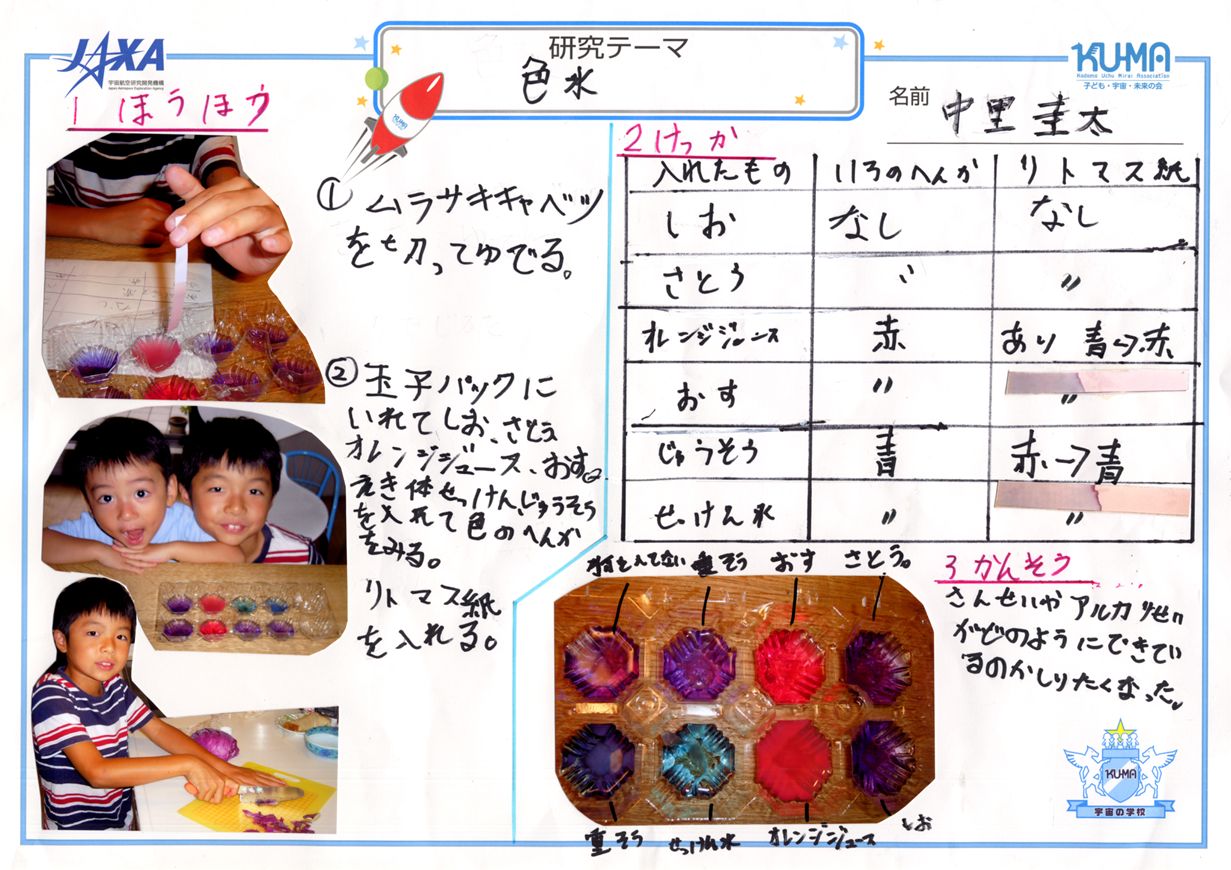 JAXA
宇宙航空研究開発機構
Japan Aerospace Exploration Agency
研究テーマ
色水
KUMA
KUMA
Kodomo Uchu Mirai Association
子ども・宇宙・未来の会
名前 中里圭太
1 ほうほう
① ムラサキキャベツ
を切ってゆでる。
② 玉子パックに
いれてしお、さとう
オレンジジュース、おす。
えき体せっけん、じゅうそう
を入れて色のへんか
をみる。
リトマス紙
を入れる。
2 けっか
入れたもの いろのへんか リトマス紙
しお なし なし
さとう 〃 〃
オレンジジュース 赤 あり 青→赤
おす 〃 〃
じゅうそう 青 赤→青
せっけん水 〃 〃
何も入れてない 重そう おす さとう。
重そう せっけん水 オレンジジュース しお
3 かんそう
さんせいやアルカリせい
がどのようにできてい
るのかしりたくなった。
KUMA
宇宙の学校